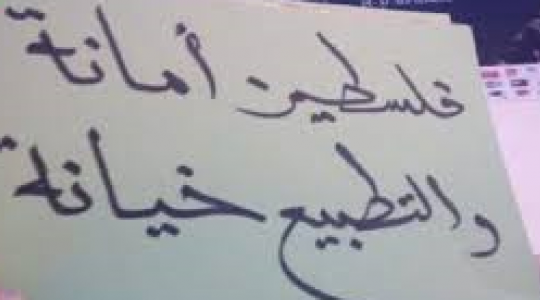 فلسطين أمانة
والتطبيع خيانة